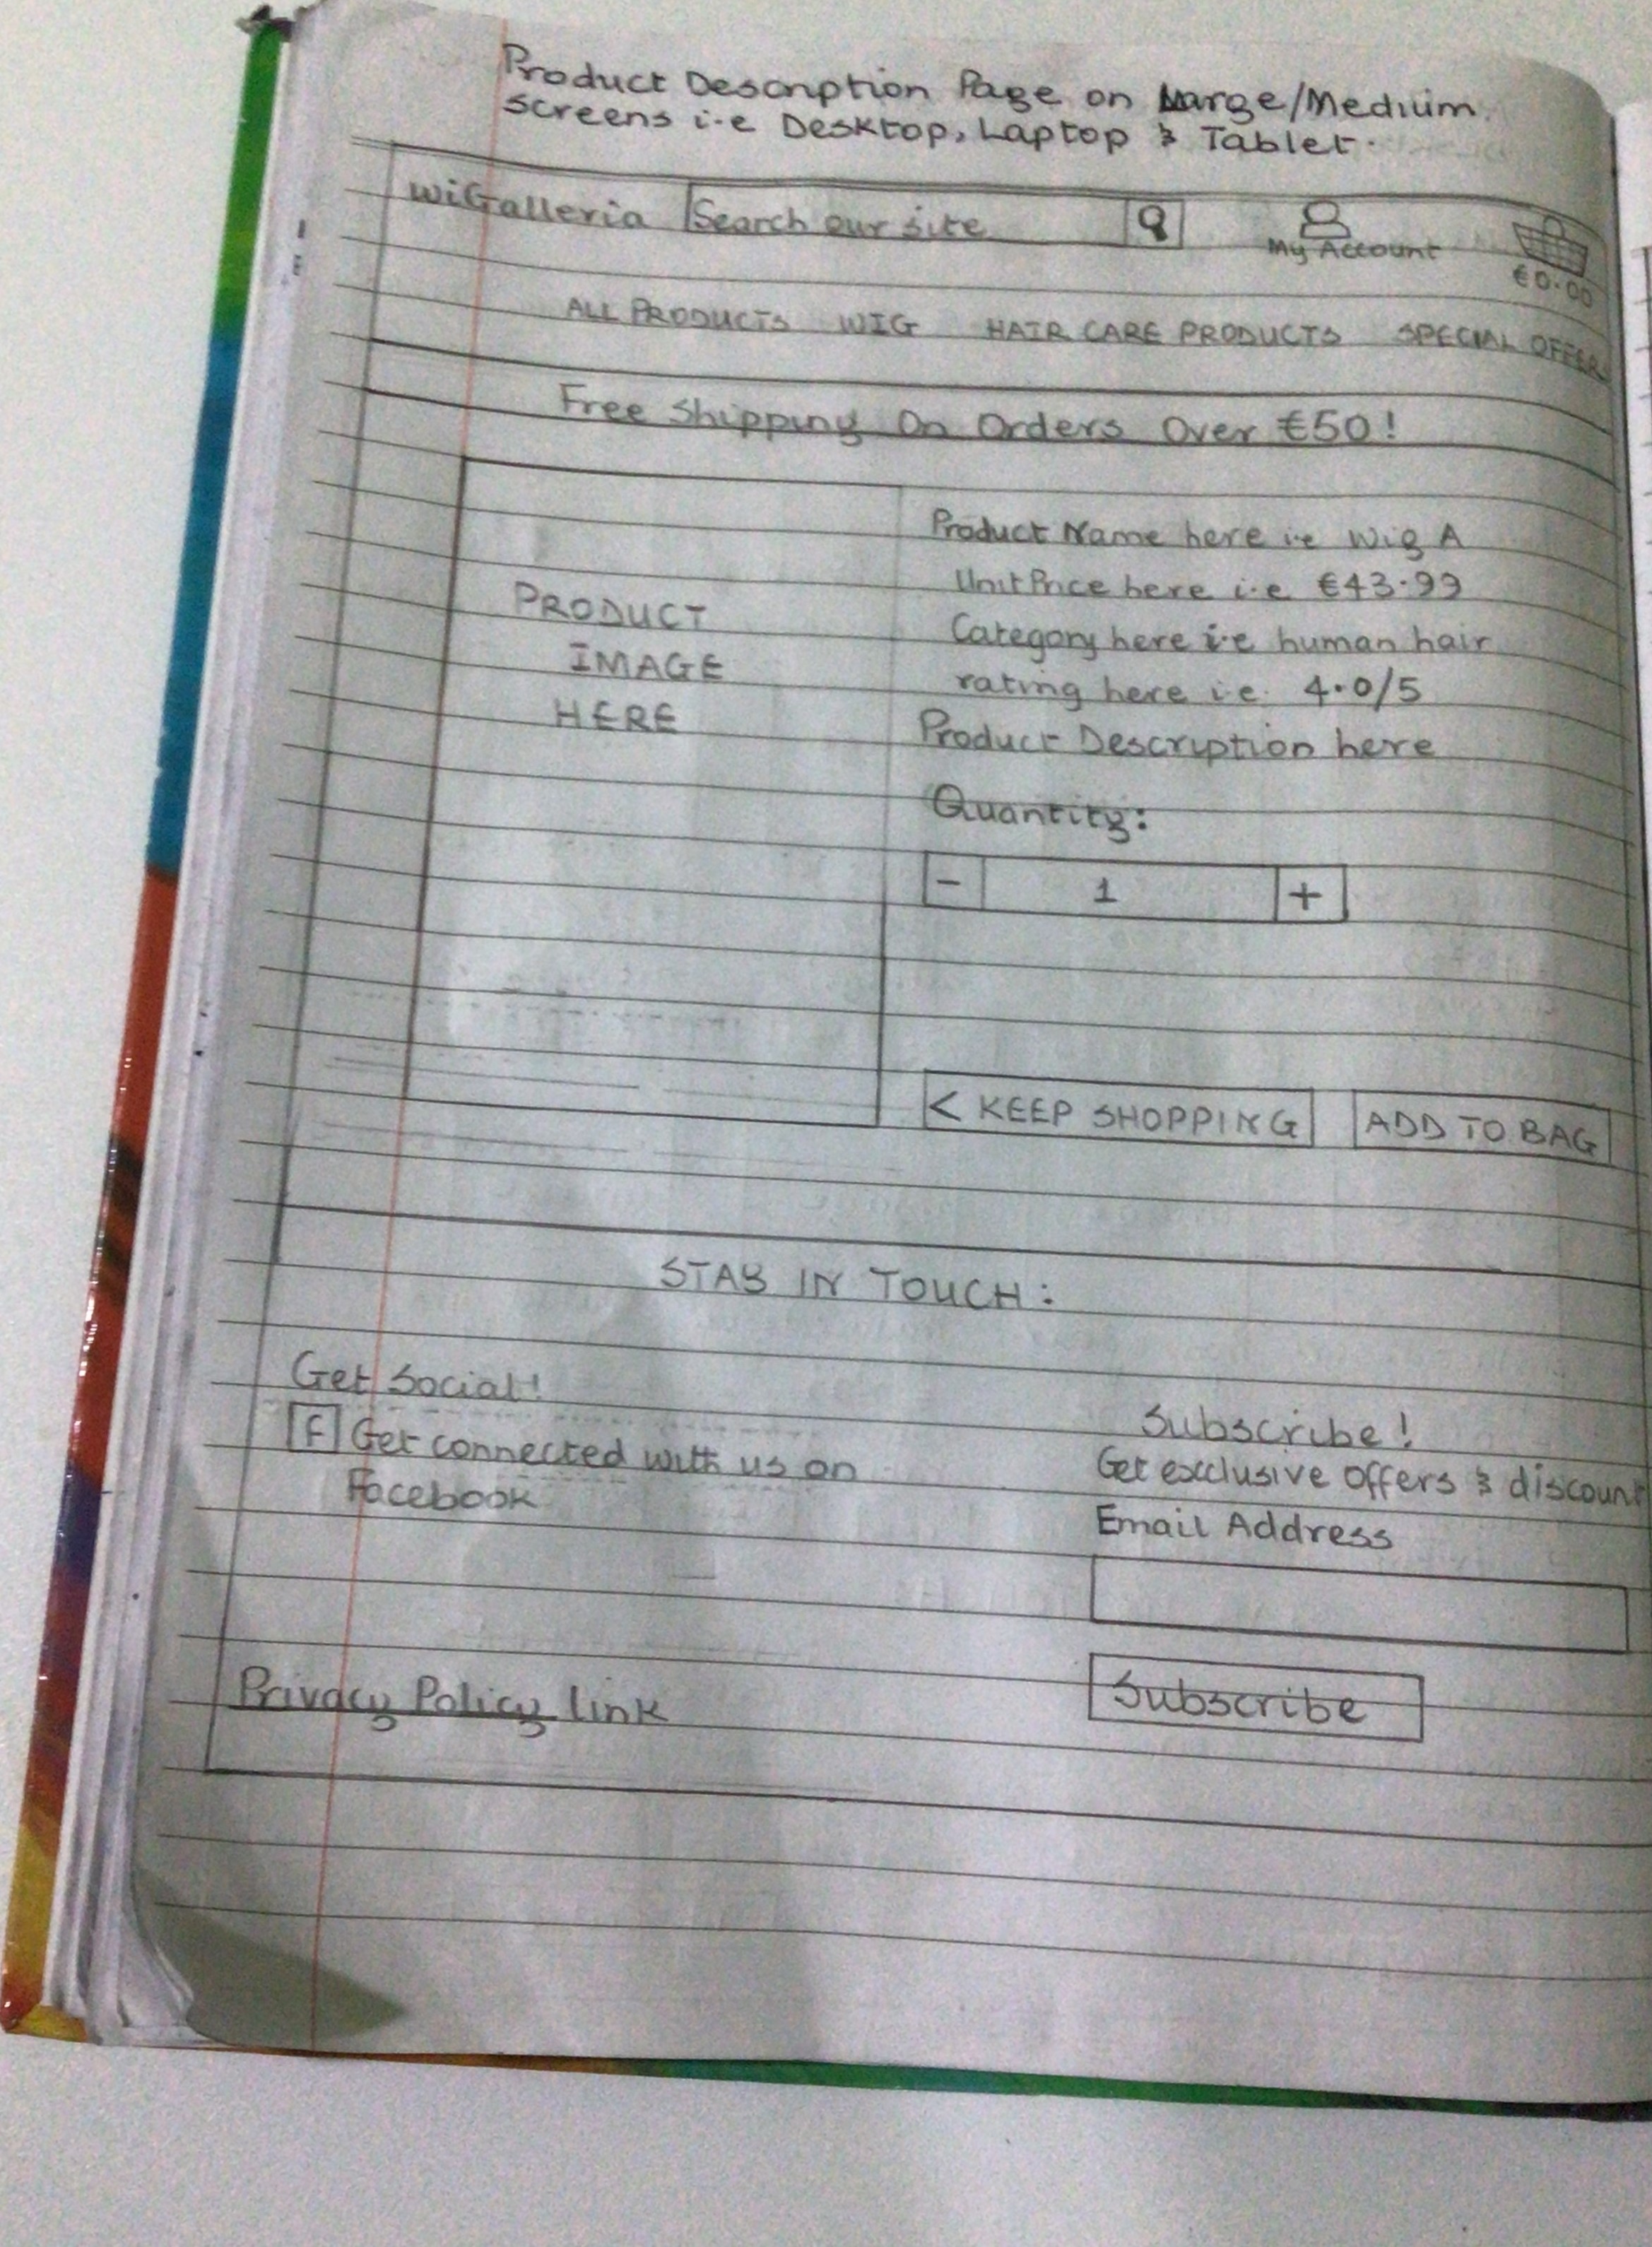 Product Description Page on Large/Medium
screens i.e Desktop, Laptop & Tablet.
wiGalleria Search our site My Account
€0.00
ALL PRODUCTS WIG HAIR CARE PRODUCTS SPECIAL OFFER
Free Shipping On Orders Over €50!
Product Name here i.e Wig A
Unit Price here i.e. €43.99
PRODUCT
Category here i.e human hair
IMAGE
rating here i.e. 4.0/5
HERE
Product Description here
Quantity:
- 1 +
< KEEP SHOPPING ADD TO BAG
STAY IN TOUCH:
Get Social!
Subscribe!
F Get connected with us on
Facebook
Get exclusive offers & discount
Email Address
Privacy Policy link
Subscribe